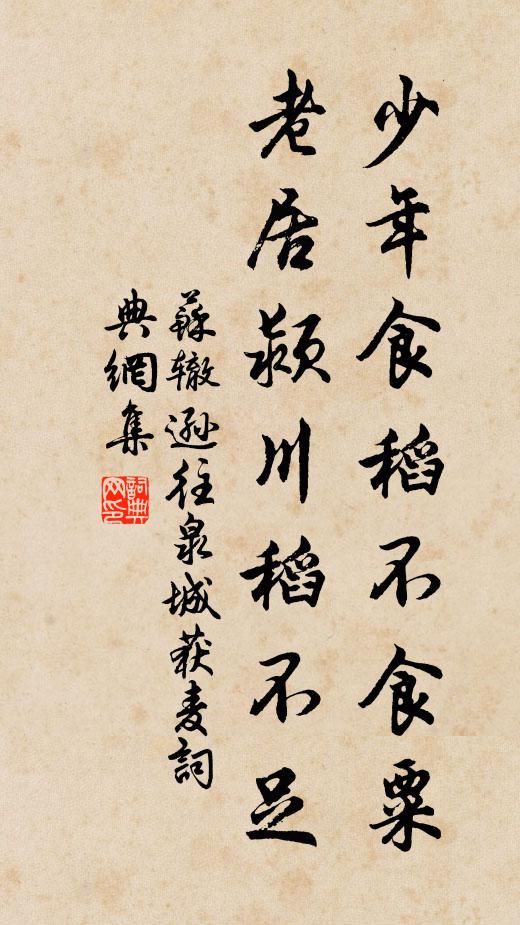 少年食稻不食粟
老居颍川稻不足
蘇辙遜往泉城获麦詞
典網集
詞典网印